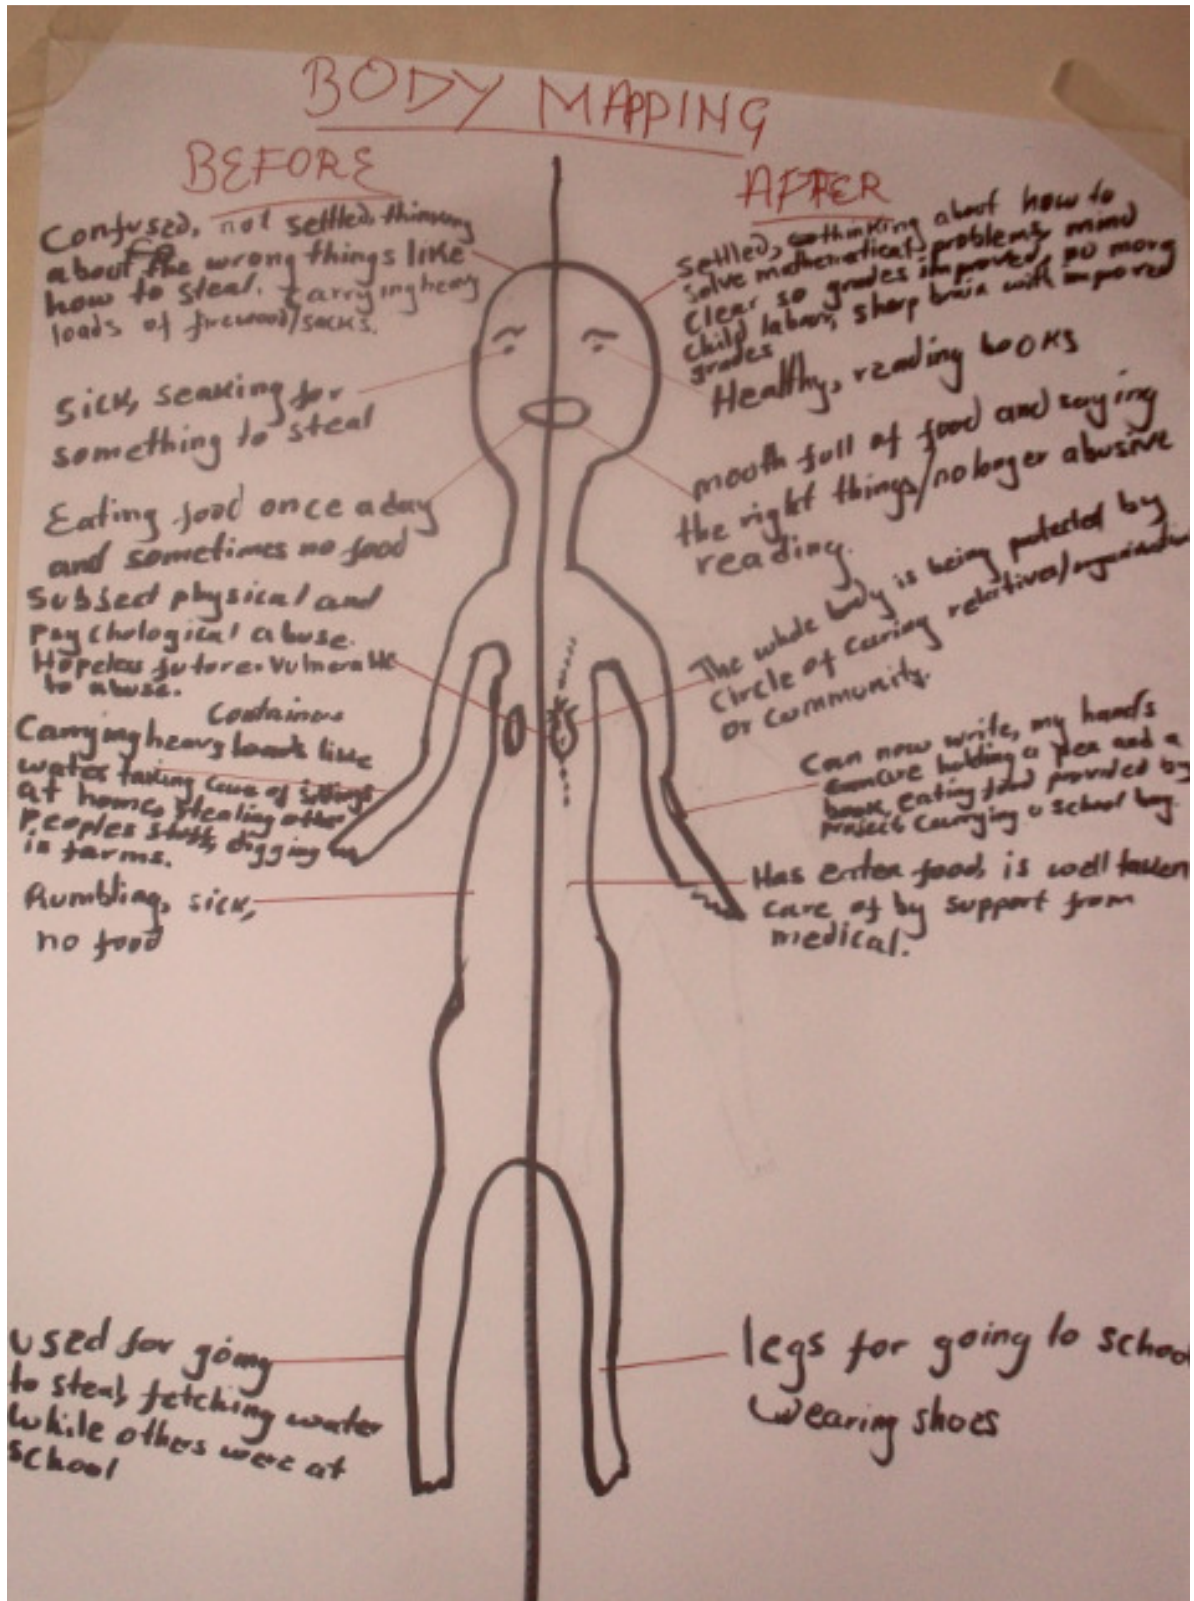 BODY MAPPING
BEFORE
Confused, not settled, thinking
about the wrong things like
how to steal. Carrying heavy
loads of firewood/sacks.
Sick, seaking for
something to steal
Eating food once a day
and sometimes no food
Subject physical and
psychological abuse.
Hopeless future. Vulnerable
to abuse.
Containers
Carrying heavy loads like
water taking care of siblings
at home, stealing other
peoples stuff, digging
in farms.
Rumbling, sick,
no food
used for going
to steal, fetching water
while others were at
school
AFTER
Settled, thinking about how to
solve mathematical problems, mind
clear so grades improved, no more
child labour, sharp brain with improved
grades
Healthy, reading books
mouth full of food and saying
the right things/no longer abusive
reading.
The whole body is being protected by
circle of caring relatives/organization
or community.
Can now write, my hands
are holding a pen and a
book, eating food provided by
project carrying a school bag.
Has enten food, is well taken
care of by support from
medical.
legs for going to school
wearing shoes